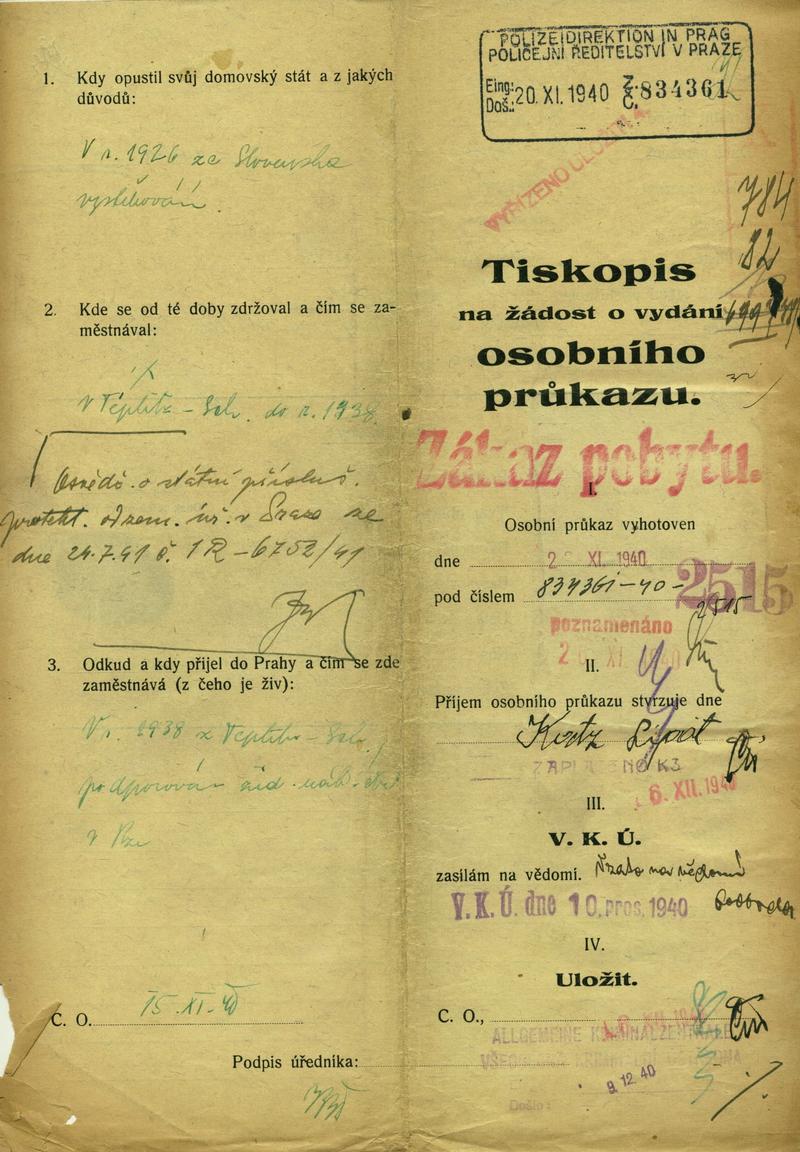 1. Kdy opustil svůj domovský stát a z jakých
důvodů:
V r. 1926 ze Slovenska
vystěhován.
2. Kde se od té doby zdržoval a čím se za-
městnával:
v Teplitz - Sch. do r. 1938
Osvědč. o státní přísluš.
protekt. od zem. úř. v Praze ze
dne 24.7.41 č. 1R-6752/41
3. Odkud a kdy přijel do Prahy a čím se zde
zaměstnává (z čeho je živ):
V r. 1938 z Teplitz - Sch.
podporován žid. náb.
v Pze
C. O. 15.XI.40
Podpis úředníka:
POLIZEIDIREKTION IN PRAG
POLICEJNÍ ŘEDITELSTVÍ V PRAZE
Eing.: Doš.: 20. XI. 1940 Z. Č. 834361
VYŘÍZENO ULOŽIT
784
82
Tiskopis
na žádost o vydání
osobního
průkazu.
Zákaz pobytu.
I.
Osobní průkaz vyhotoven
dne 2 XI. 1940
pod číslem 834361-40- 2515
2515
poznamenáno
2 XI. 1940
II.
Příjem osobního průkazu stvrzuje dne
Lipót
ZAPLACENO K3
6. XII. 1940
III.
V. K. Ú.
zasílám na vědomí.
V. K. Ú. dne 10. pros. 1940
IV.
Uložit.
C. O.,
ALLGEMEINE KRIMINALZENTRALE
9. 12. 40
Došlo: